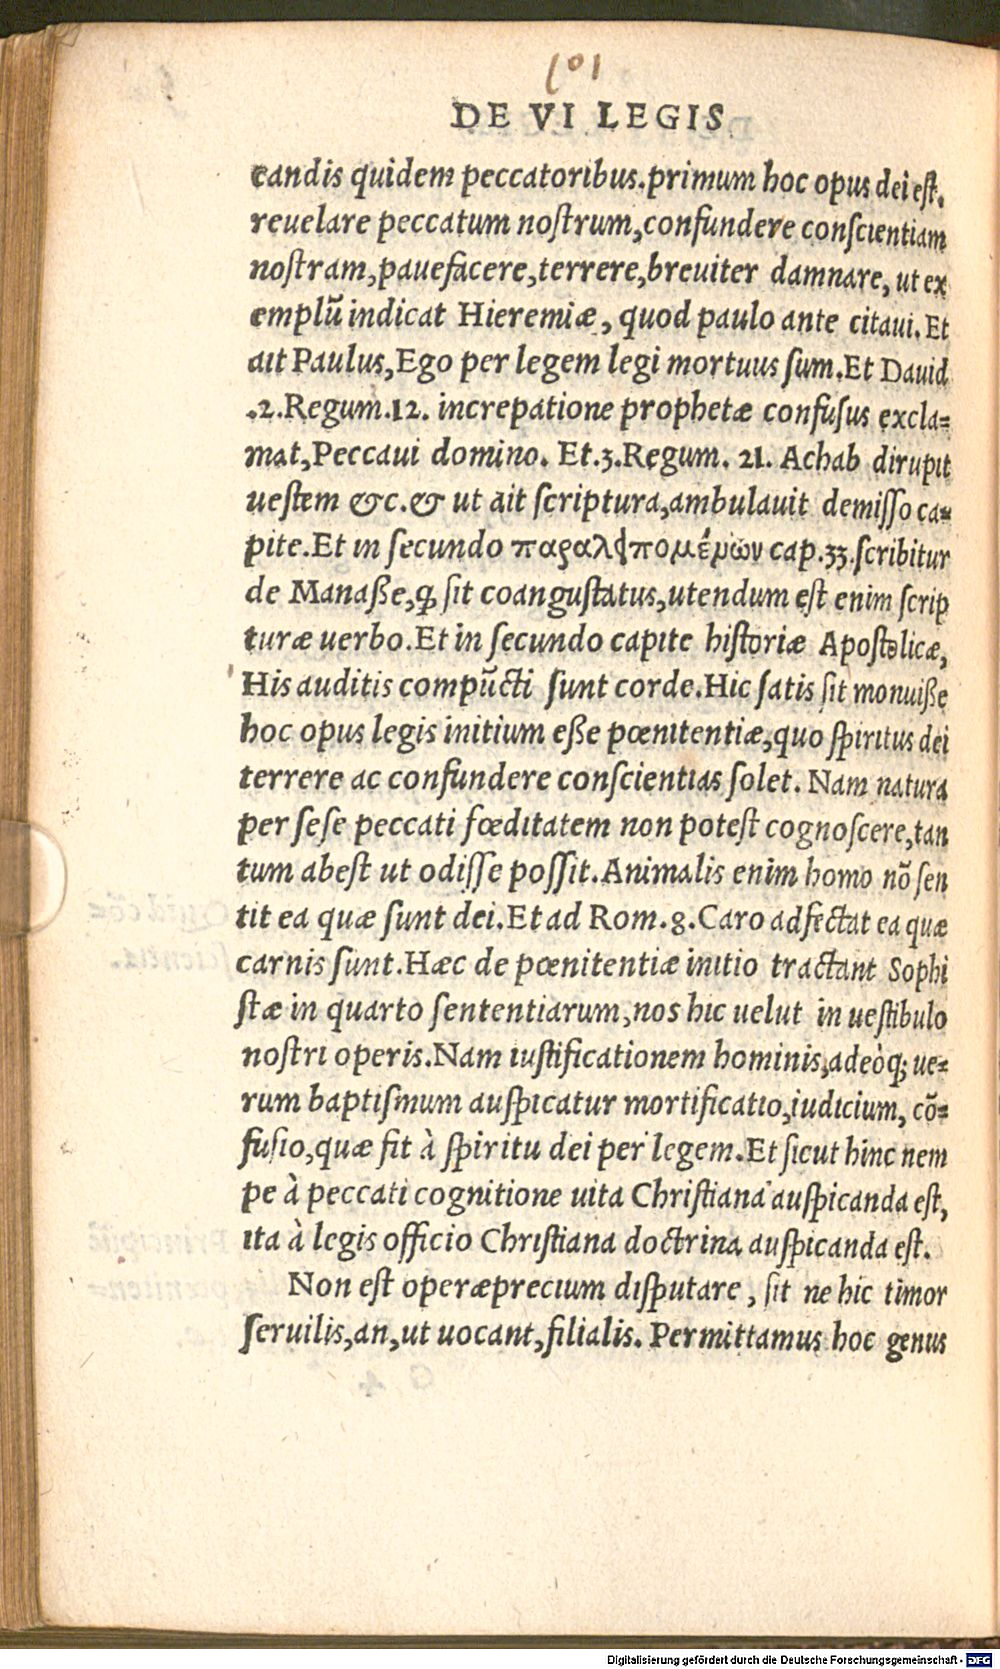 101
DE VI LEGIS
candis quidem peccatoribus.primum hoc opus dei est.
reuelare peccatum nostrum,confundere conscientiam
nostram,pauefacere,terrere,breuiter damnare, ut ex
emplũ indicat Hieremiæ, quod paulo ante citaui. Et
ait Paulus,Ego per legem legi mortuus sum.Et Dauid
.2.Regum.12. increpatione prophetæ confusus excla-
mat,Peccaui domino. Et.3.Regum. 21. Achab dirupit
uestem &c.& ut ait scriptura,ambulauit demisso ca-
pite.Et in secundo παραλϕπομέμων cap.33.scribitur
de Manaße,ꝙ sit coangustatus,utendum est enim scrip
turæ uerbo.Et in secundo capite historiæ Apostolicæ,
His auditis compũcti sunt corde.Hic satis sit monuiße
hoc opus legis initium eße pœnitentiæ,quo spiritus dei
terrere ac confundere conscientias solet. Nam natura
per sese peccati fœditatem non potest cognoscere,tan
tum abest ut odisse possit.Animalis enim homo nõ sen
tit ea quæ sunt dei.Et ad Rom.8.Caro adfectat ea quæ
carnis sunt.Hæc de pœnitentiæ initio tractant Sophi
stæ in quarto sententiarum,nos hic uelut in uestibulo
nostri operis.Nam iustificationem hominis,adeòq; ue-
rum baptismum auspicatur mortificatio,iudicium, cõ-
fusio,quæ fit à spiritu dei per legem.Et sicut hinc nem
pe à peccati cognitione uita Christiana auspicanda est,
ita à legis officio Christiana doctrina auspicanda est.
Non est operæprecium disputare, sit ne hic timor
seruilis,an,ut uocant,filialis. Permittamus hoc genus
Digitalisierung gefördert durch die Deutsche Forschungsgemeinschaft - DFG